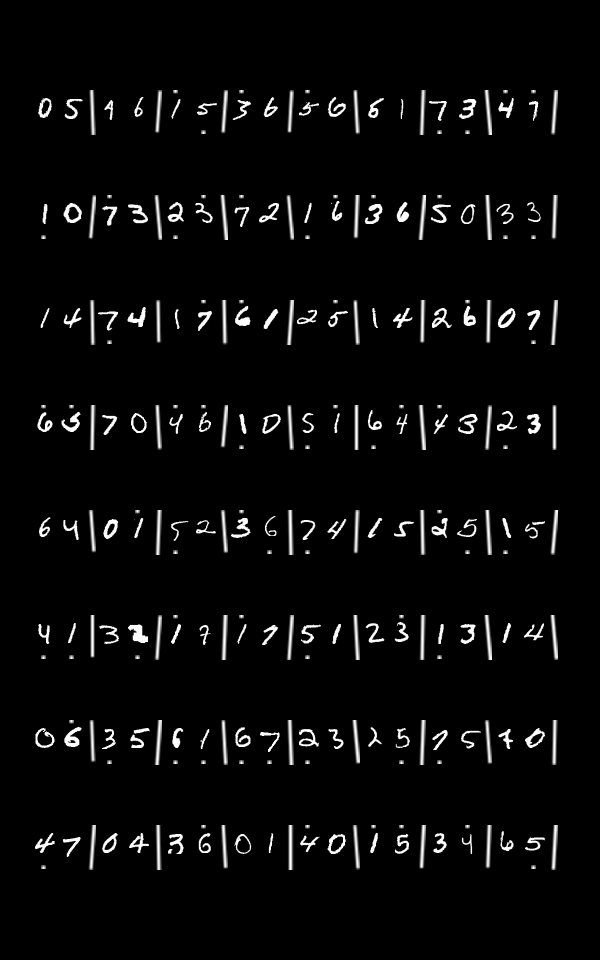 0 5 | 4 6 | 1̇ 5̣ | 3̇ 6 | 5̇ 6̇ | 6 1 | 7̣ 3̣ | 4̇ 7̇ |
1̣ 0 | 7̇ 3 | 2̣ 3̇ | 7̇ 2 | 1̣ 6̇ | 3̇ 6 | 5̇ 0 | 3̣ 3̣ |
1 4 | 7̣ 4 | 1 7̇ | 6̇ 1 | 2 5̇ | 1 4 | 2 6̇ | 0 7̣ |
6̇ 5̇ | 7 0 | 4̇ 6̇ | 1̣ 0 | 5̣ 1̇ | 6̣ 4̇ | 4̇ 3 | 2̣ 3 |
6 4 | 0 1̇ | 5̣ 2 | 3̇ 6̣ | 7̣ 4 | 1 5 | 2̇ 5̣ | 1̣ 5 |
4̣ 1̣ | 3 2̣ | 1̇ 7 | 1̇ 7 | 5̣ 1 | 2 3̇ | 1̣ 3 | 1 4 |
0 6̇ | 3̣ 5 | 6̣ 1̣ | 6̣ 7̣ | 2̣ 3 | 2 5̣ | 7̣ 5 | 7 0 |
4̣ 7 | 0 4 | 3 6̇ | 0 1 | 4̇ 0 | 1̇ 5̇ | 3 4̇ | 6 5̣ |